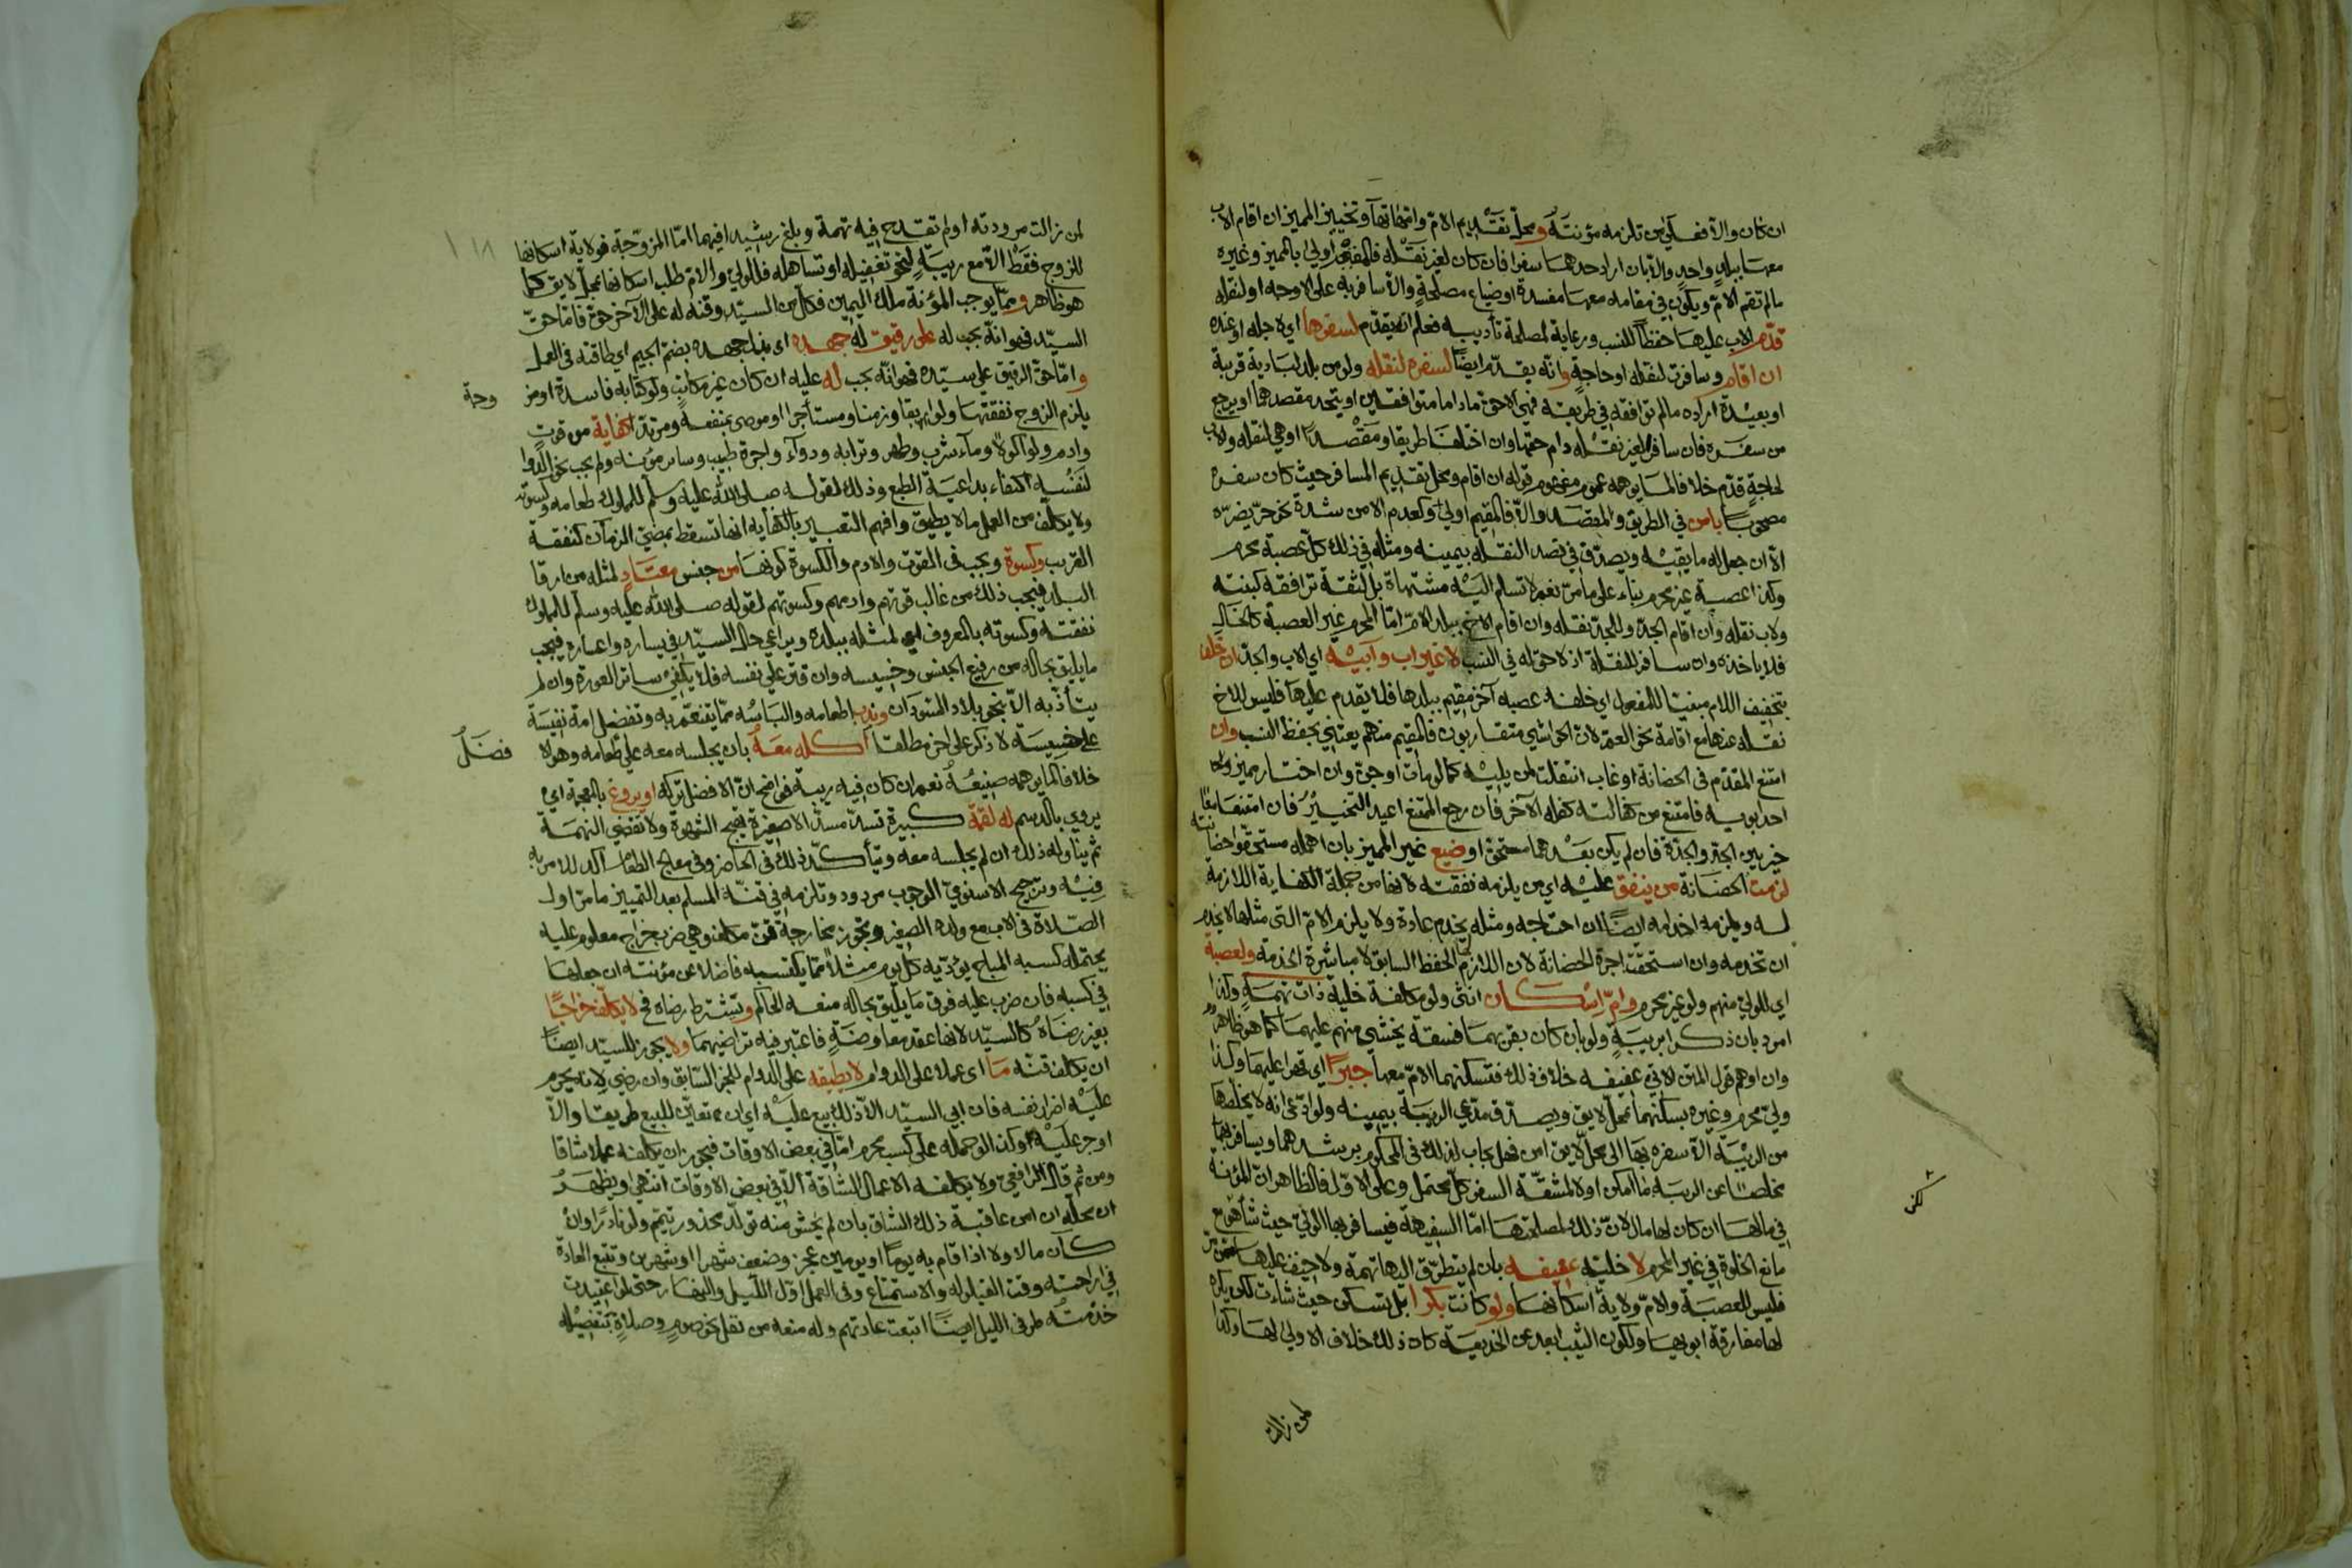 ان كان والا فعلى من تلزمه مؤنته ومحل تقديم الام وامهاتها وتخيير المميز ان اقام الاب
معها ببلد واحد والا بان اراد احدهما سفرا فان كان لغير نقله فالمقيم اولى بالمميز وغيره
ما لم تقم الام ويكون في مقامه معها مفسدة او ضياع مصلحة والا سافر به على الاوجه او لنقله
قدم الاب عليها حفظا للنسب ورعاية لمصلحة تأديبه فعلم انه يقدم لسفرها اي لاجله او عنده
ان اقام وسافرت لنقله او حاجة وانه يقدم ايضا لسفره لنقله ولو من بلد لبادية قريبة
او بعيدة اراده ما لم ترافقه في طريقه فهي الاحق ما داما متوافقين او يتحد مقصدهما او يرجع
من سفره فان سافر لغير نقله دام حقها وان اختلفا طريقا ومقصدا او هي لنقله والاب
لحاجة قدم خلافا لما يوهمه عموم مفهوم قوله ان اقام ومحل تقديم المسافر حيث كان سفره
مصحوبا بامن في الطريق والمقصد والا فالمقيم اولى وكعدم الامن شدة نحو حر يضره
الا ان جعل له ما يقيه ويصدق في قصد النقله بيمينه ومثله في ذلك كل عصبة محرم
وكذا عصبة غير محرم بناء على ما مر نعم لا تسلم اليه مشتهاة بل لثقة ترافقه كبنته
ولاب نقله وان اقام الجد وللجد نقله وان اقام الاخ ببلد الام اما المحرم غير العصبة كالخال
فلا ياخذه وان سافر للنقلة اذ لا حق له في النسب لا غير اب وابيه اي الاب والجد ان خلف
بتخفيف اللام مبنيا للمفعول اي خلفه عصبه آخر مقيم ببلدها فلا يقدم عليها فليس للاخ
نقله عنها مع اقامة نحو العم لان الحواشي متقاربون فالمقيم منهم يعتني بحفظ النسب وان
امتنع المقدم في الحضانة او غاب انتقلت لمن يليه كما لو مات او جن وان اختار مميز
احد ابويه فامتنع من كفالته كفله الآخر فان رجع الممتنع اعيد التخيير فان امتنعا
خير بين الجد والجدة فان لم يكن بعدهما مستحق او ضيع غير المميز بان اهمله مستحقو حضانته
لزمت الحضانة من ينفق عليه اي من يلزمه نفقته لانها من جملة الكفاية اللازمة
له ويلزمه اخدامه ايضا ان احتاجه ومثله يخدم عادة ولا يلزم الام التي مثلها لا يخدم
ان تخدمه وان استحقت اجرة الحضانة لان اللازم لها الحفظ السابق لا مباشرة الخدمة ولعصبة
اي للولي منهم ولو غير محرم وام اسكان انثى ولو مكلفة خلية ذات تهمة وكذا
امرد بان ذكرا بريبة ولو بان كان بقربهما فسقة يخشى منهم عليهما كما هو ظاهر
وان اوهم قول المتن الاتي عفيفه خلاف ذلك فتسكنهما الام معها جبرا اي قهرا عليهما وكذا
ولي محرم وغيره يسكنهما بمحل لايق ويصدق مدعي الريبة بيمينه ولو ادعى انه لا يخلصها
من الريبة الا سفره بها الى محل لايق امن فهل يجاب لذلك في المحكوم برشدهما ويسافر بهما
تخلصا من الريبة ما امكن او لا لمشقة السفر كل محتمل وعلى الاول فالظاهر ان المؤنة
في مالها ان كان لها مال لان ذلك لمصلحتها اما السفيهة فيسافر بها الولي حيث شاء
مانع الخلوة في غير المحرم لا خلية عفيفه بان لم يتطرق اليها تهمة ولا خيف عليها
فليس للعصبة والام ولاية اسكانها ولو كانت بكرا بل تسكن حيث شاءت لكن يكره
لها مفارقة ابويها ولكون الثيب ابعد عن الخديعة كان ذلك خلاف الاولى لها وكذا
لمن زالت
لمن زالت مرودته او لم تقدح فيه تهمة وبلغ رشيدا فيهما اما المزوجة فولاية اسكانها
للزوج فقط الا مع ريبة لنحو تغفيله او تساهله فللولي والام طلب اسكانها بمحل لايق كما
هو ظاهر ومما يوجب المؤنة ملك اليمين فكل من السيد وقنه له على الآخر حق فاما حق
السيد فهو انه يجب له على رقيق له جهده اي بذل جهده بضم الجيم اي طاقته في العمل
واما حق الرقيق على سيده فهو انه يجب له عليه ان كان غير مكاتب ولو كتابه فاسدة او مز وجة
يلزم الزوج نفقتها ولو ابقا وزمنا ومستأجرا وموصى بمنفعه ومرتدا كفاية من قوت
وادم ولو اكولا وماء شرب وطهر وترابه ودواء واجرة طبيب وسائر مؤنه ولم يجب نحو الدوا
لنفسه اكتفاء بداعية الطبع وذلك لقوله صلى الله عليه وسلم للمملوك طعامه وكسوته
ولا يكلف من العمل ما لا يطيق وافهم التعبير بالكفايه انها تسقط بمضي الزمان كنفقة
القريب وكسوة ويجب في القوت والادم والكسوة كونها من جنس معتاد لمثله من ارقا
البلد فيجب ذلك من غالب قوتهم وادمهم وكسوتهم لقوله صلى الله عليه وسلم للمملوك
نفقته وكسوته بالمعروف اي لمثله ببلده ويراعي حال السيد في يساره واعساره فيجب
ما يليق بحاله من رفيع الجنس وخسيسه وان قتر على نفسه فلا يكفي ساتر العورة وان لم
يتأذ به الا بنحو بلاد السودان وندب اطعامه والباسه مما يتنعم به وتفضيل امة نفيسة
على خسيسة لا ذكر على اخر مطلقا اكله معه بان يجلسه معه على طعامه وهو الا فضل
خلافا لما يوهمه صنيعه نعم ان كان فيه ريبة فواضح ان الافضل تركه او يروغ بالمعجمة اي
يروي بالدسم له لقمة كبيرة تسد مسدا لا صغيرة تهيج الشهوة ولا تقضي النهمة
ثم يناوله ذلك ان لم يجلسه معه ويتأكد ذلك في الحاضر وفي معالج الطعام آكد للامر به
فيه وترجيح الاسنوي الوجوب مردود وتلزمه في قنه المسلم بعد التمييز ما مر اول
الصلاة في الاب مع ولده الصغير ويجوز مخارجة قن مكلف وهي ضرب خراج معلوم عليه
يحتمله كسبه المباح يؤديه كل يوم مثلا مما يكتسبه فاضلا عن مؤنته ان جعلها
في كسبه فان ضرب عليه فوق ما يليق بحاله منعه الحاكم وتشترط رضاه فح لا يكلف خراجا
بغير رضاه كالسيد لانها عقد معاوضة فاعتبر فيه تراضيهما ولا يجوز للسيد ايضا
ان يكلف قنه ما اي عملا على الدوام لا يطيقه على الدوام للخبر السابق وان رضي لانه يحرم
عليه اضرار نفسه فان ابى السيد الا ذلك بيع عليه اي ان تعين للبيع طريقا والا
اوجر عليه وكذا لو حمله على كسب محرم اما في بعض الاوقات فيجوز ان يكلفه عملا شاقا
ومن ثم قال الرافعي ولا يكلفه الاعمال الشاقة الا في بعض الاوقات انتهى ويظهر
ان محله ان امن عاقبة ذلك الشاق بان لم يخش منه تولد محذور تيمم ولو نادرا وان
كان مالا ولا اذا قام به يوما او يومين عجز وضعف شهرا او شهرين وتتبع العادة
في اراحته وقت القيلوله والاستمتاع وفي العمل اول الليل والنهار حتى لو اعتيدت
خدمته طرفي الليل ايضا اتبعت عادتهم وله منعه من نفل نحو صوم وصلاة بتفصيله